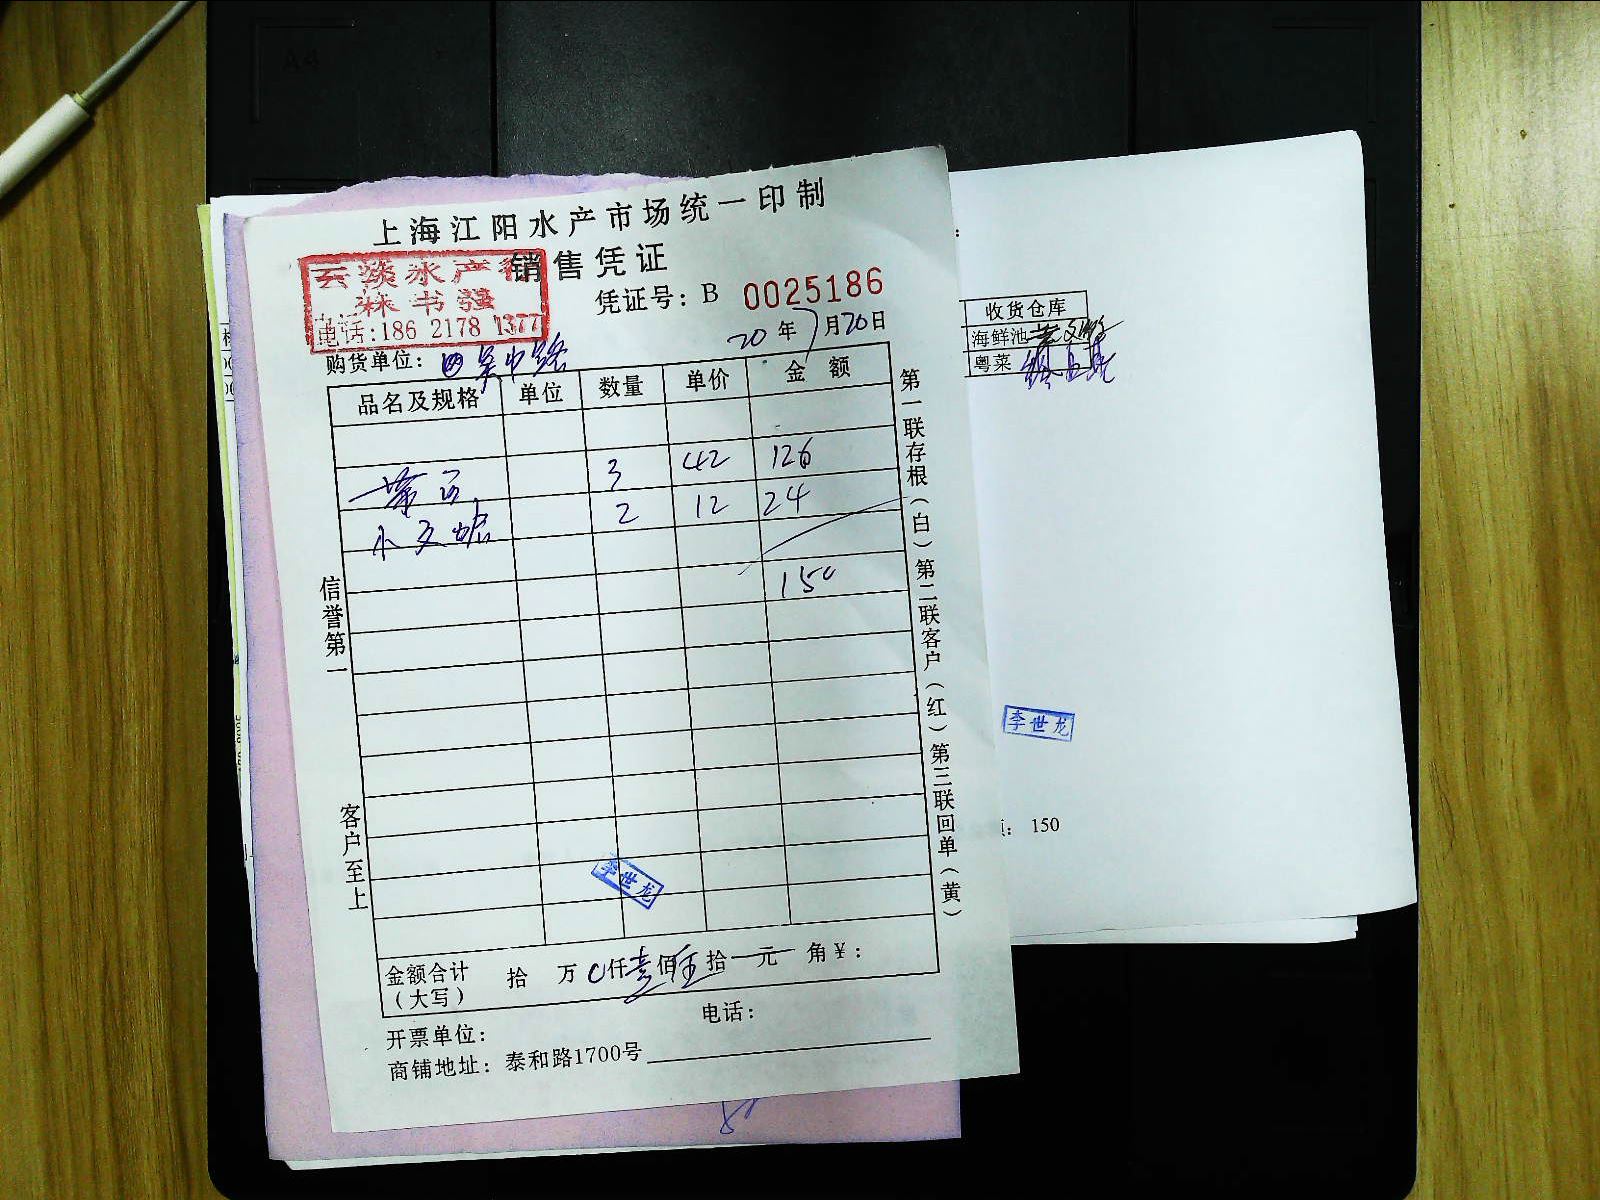 上海江阳水产市场统一印制
销售凭证
云淡水产行
林书强
电话:186 2178 1377
凭证号：B 0025186
20年7月20日
购货单位：
品名及规格 单位 数量 单价 金额
3 42 126
2 12 24
150
信誉第一
客户至上
第一联存根（白）第二联客户（红）第三联回单（黄）
李世龙
金额合计（大写） 拾 万 0仟壹佰伍拾 元 角¥：
开票单位：
电话：
商铺地址：泰和路1700号
收货仓库
海鲜池
粤菜
李世龙
：150
A4